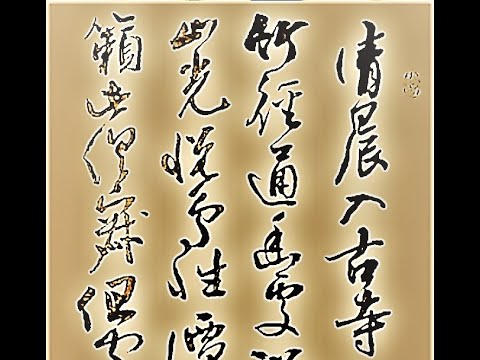 清晨入古寺
竹徑通幽處
山光悅鳥性潭
籟此俱寂但